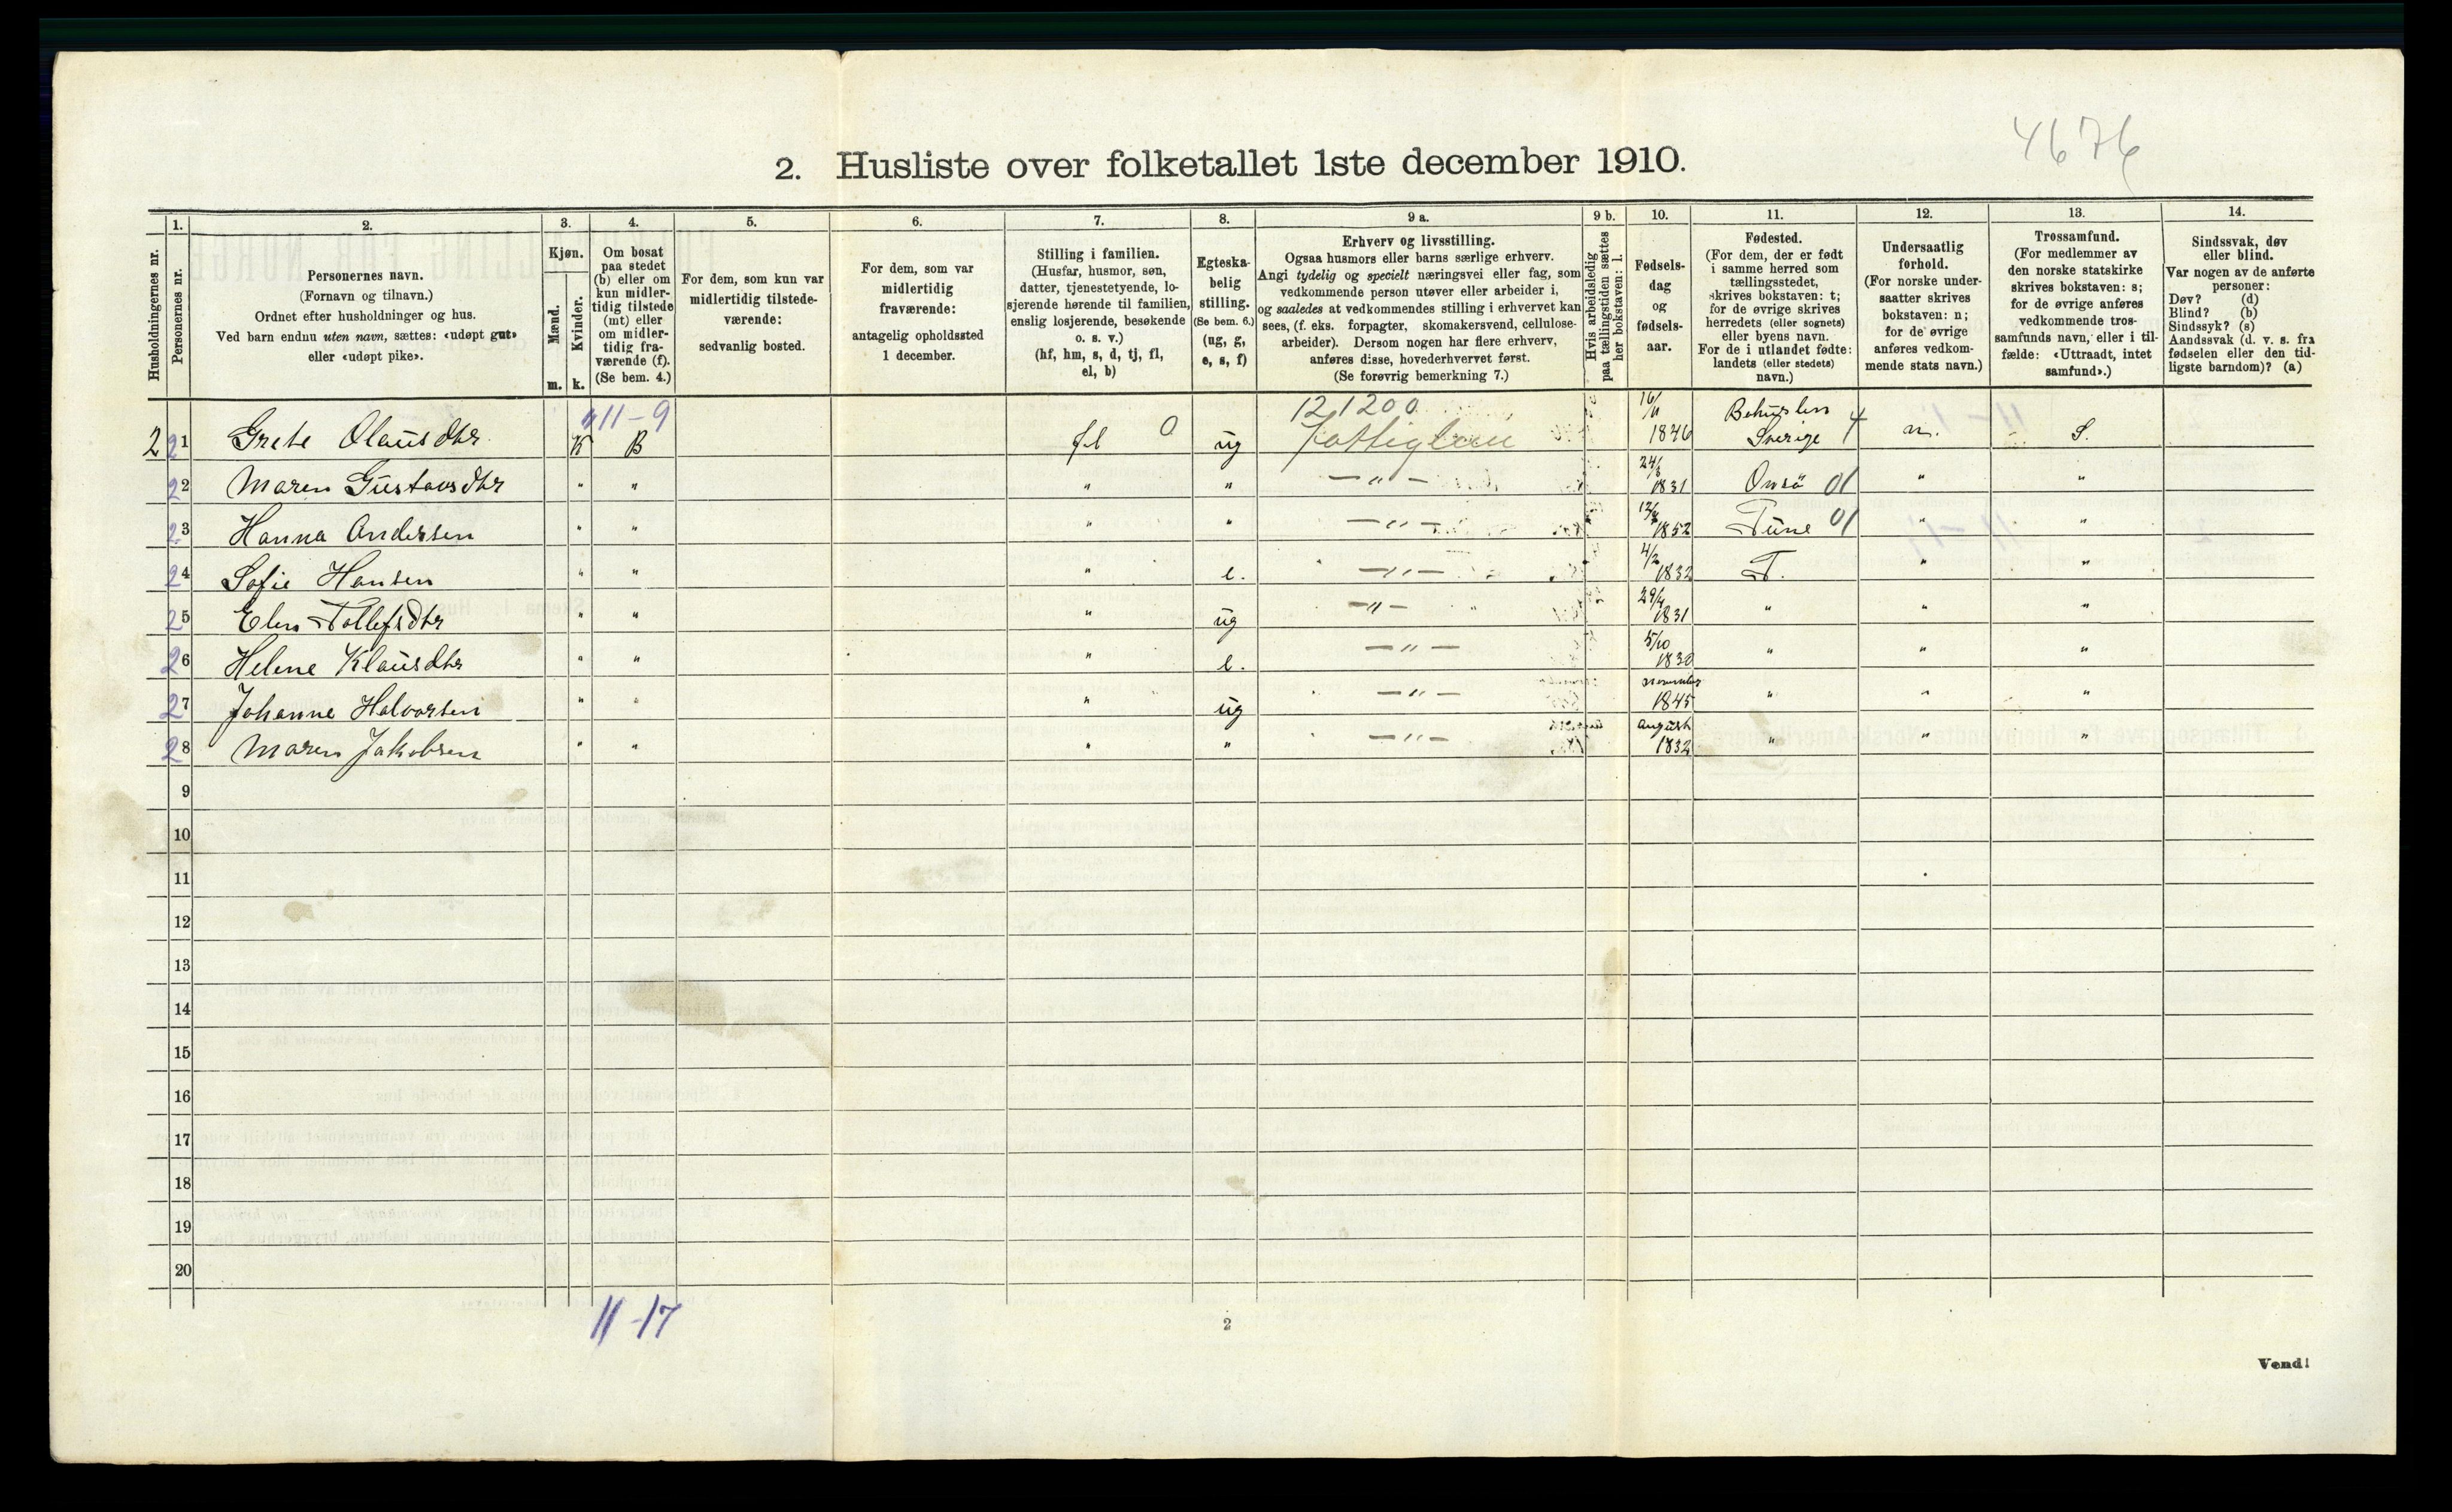 4676
2. Husliste over folketallet 1ste december 1910.
Husholdningernes nr.
1.
Personernes nr.
2.
Personernes navn.
(Fornavn og tilnavn.)
Ordnet efter husholdninger og hus.
Ved barn endnu uten navn, sættes: «udøpt gut»
eller «udøpt pike».
3.
Kjøn.
Mænd.
Kvinder.
m. k.
4.
Om bosat
paa stedet
(b) eller om
kun midler-
tidig tilstede
(mt) eller
om midler-
tidig fra-
værende (f).
(Se bem. 4.)
5.
For dem, som kun var
midlertidig tilstede-
værende:
sedvanlig bosted.
6.
For dem, som var
midlertidig
fraværende:
antagelig opholdssted
1 december.
7.
Stilling i familien.
(Husfar, husmor, søn,
datter, tjenestetyende, lo-
sjerende hørende til familien,
enslig losjerende, besøkende
o. s. v.)
(hf, hm, s, d, tj, fl,
el, b)
8.
Egteska-
belig
stilling.
(Se bem. 6.)
(ug, g,
e, s, f)
9 a.
Erhverv og livsstilling.
Ogsaa husmors eller barns særlige erhverv.
Angi tydelig og specielt næringsvei eller fag, som
vedkommende person utøver eller arbeider i,
og saaledes at vedkommendes stilling i erhvervet kan
sees, (f. eks. forpagter, skomakersvend, cellulose-
arbeider). Dersom nogen har flere erhverv,
anføres disse, hovederhvervet først.
(Se forøvrig bemerkning 7.)
9 b.
Hvis arbeidsledig
paa tællingstiden sættes
her bokstaven: l.
10.
Fødsels-
dag
og
fødsels-
aar.
11.
Fødested.
(For dem, der er født
i samme herred som
tællingsstedet,
skrives bokstaven: t;
for de øvrige skrives
herredets (eller sognets)
eller byens navn.
For de i utlandet fødte:
landets (eller stedets)
navn.)
12.
Undersaatlig
forhold.
(For norske under-
saatter skrives
bokstaven: n;
for de øvrige
anføres vedkom-
mende stats navn.)
13.
Trossamfund.
(For medlemmer av
den norske statskirke
skrives bokstaven: s;
for de øvrige anføres
vedkommende tros-
samfunds navn, eller i til-
fælde: «Uttraadt, intet
samfund».)
14.
Sindssvak, døv
eller blind.
Var nogen av de anførte
personer:
Døv? (d)
Blind? (b)
Sindssyk? (s)
Aandssvak (d. v. s. fra
fødselen eller den tid-
ligste barndom)? (a)
11-9 121200 16/11
2 21 Grete Olausdtr K B fl 0 ug 1846 Sverige 4 n. S.
22 Maren Gustavsdtr " " " " —"— 1831 Onsö 01 " "
23 Hanna Andersen " " " " —"— 1852 Tune 01 " "
24 Sofie Hansen " " " e. —"— 4/2 1832 T. " "
25 Elen Tollefsdtr " " " ug —"— 29/4 1831 " " "
26 Helene Klausdtr " " " e. —"— 5/10 1830 " " "
27 Johanne Halvorsen " " " ug —"— 1845 " " "
28 Maren Jakobsen " " " " —"— August 1832 " " "
9
10
11
12
13
14
15
16
17
18
19
20
11-17
2
Vend!